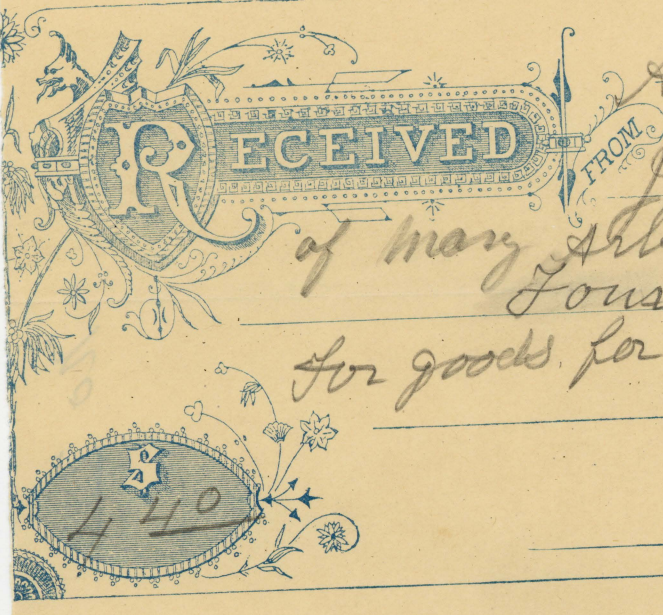 RECEIVED FROM
of Mary
For goods for
$
4 40